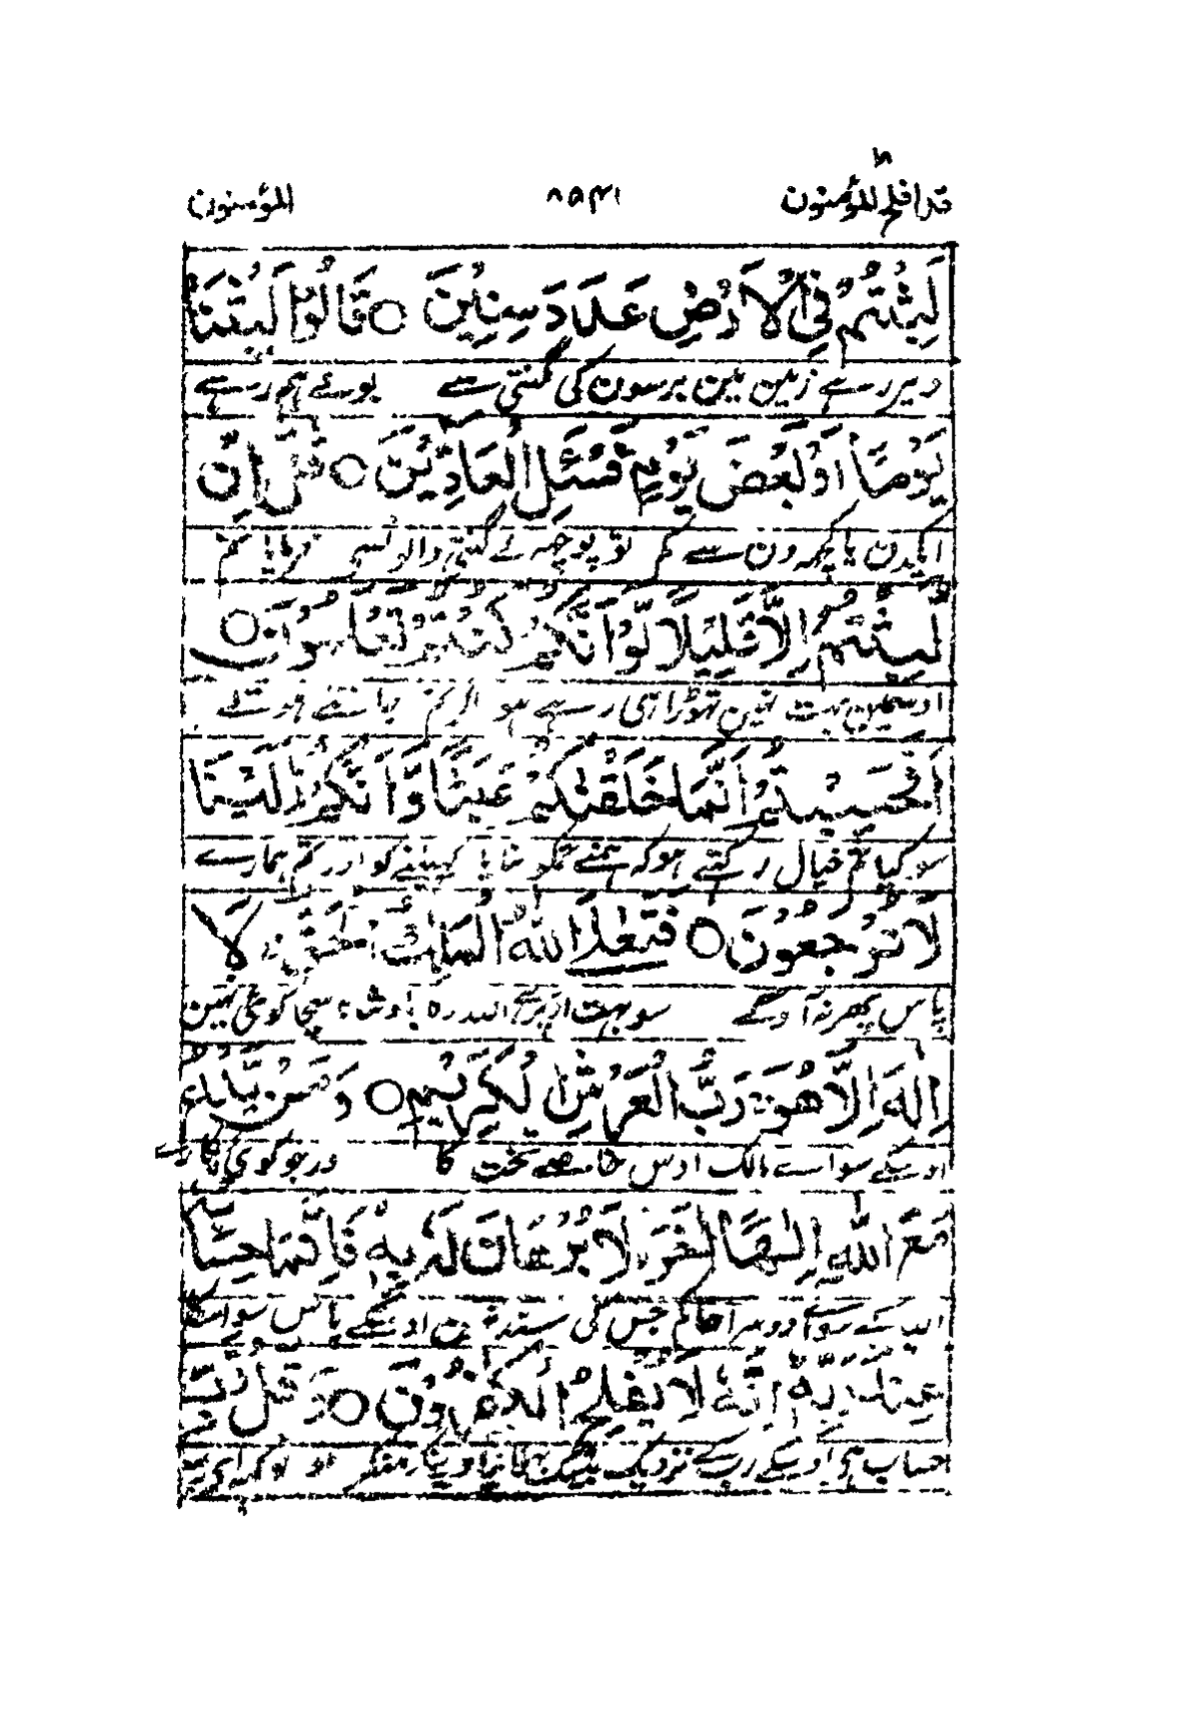 قد افلح المؤمنون المؤمنون
لَبِثْتُمْ فِي الْاَرْضِ عَدَدَ سِنِيْنَ ○ قَالُوْا لَبِثْنَا
دیر رہے زمین مین برسون کی گنتی سے بولے ہم رہے
يَوْمًا اَوْ بَعْضَ يَوْمٍ فَسْئَلِ الْعَادِّيْنَ ○ قٰلَ اِنْ
ایکدن یا کچھہ دن سے کم تو پوچھہ لے گنتی والونسے فرمایا تم
لَبِثْتُمْ اِلَّا قَلِيْلًا لَّوْ اَنَّكُمْ كُنْتُمْ تَعْلَمُوْنَ ○
اوسمین بہت نہین تھوڑا ہی رہے ہو اگر تم جانتے ہوتے
اَفَحَسِبْتُمْ اَنَّمَا خَلَقْنٰكُمْ عَبَثًا وَّاَنَّكُمْ اِلَيْنَا
سو کیا تم خیال رکھتے ہو کہ ہمنے تمکو بنایا کھیلنے کو اور تم ہمارے
لَا تُرْجَعُوْنَ ○ فَتَعٰلَى اللّٰهُ الْمَلِكُ الْحَقُّ ۚ لَا
پاس پھر نہ آوگے سو بہت اوپر ہے اللہ وہ بادشاہ سچا کوئی نہین
اِلٰهَ اِلَّا هُوَ ۚ رَبُّ الْعَرْشِ الْكَرِيْمِ ○ وَمَنْ يَّدْعُ
اوسکے سواے مالک اوس خاصے تخت کا اور جو کوئی پکارے
مَعَ اللّٰهِ اِلٰهًا اٰخَرَ ۙ لَا بُرْهَانَ لَهٗ بِهٖ فَاِنَّمَا حِسَابُهٗ
اللہ کے سواے دوسرا حاکم جس کی سند نہین اوسکے پاس سو اوسکا
عِنْدَ رَبِّهٖ اِنَّهٗ لَا يُفْلِحُ الْكٰفِرُوْنَ ○ وَقُلْ رَّبِّ
حساب ہے اوسکے رب کے نزدیک بیشک بھلا نپاوینگے منکر اور تو کہہ اے رب